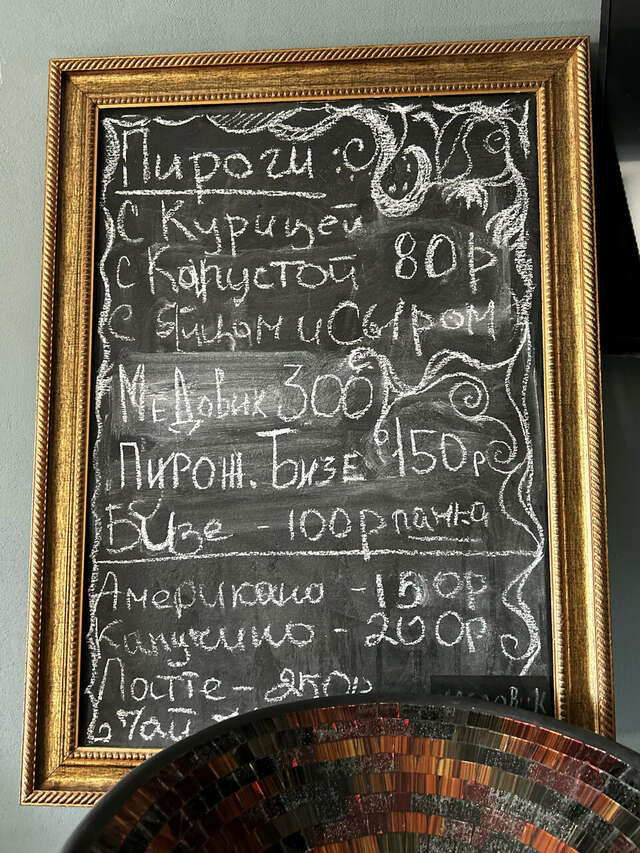 Пироги:
с Курицей
с Капустой 80р
с яйцом и Сыром
Медовик 300
Пирож. Бизе 150р
Бизе - 100р пачка
Американо - 150р
Капучино - 200р
Латте - 250р
Чай